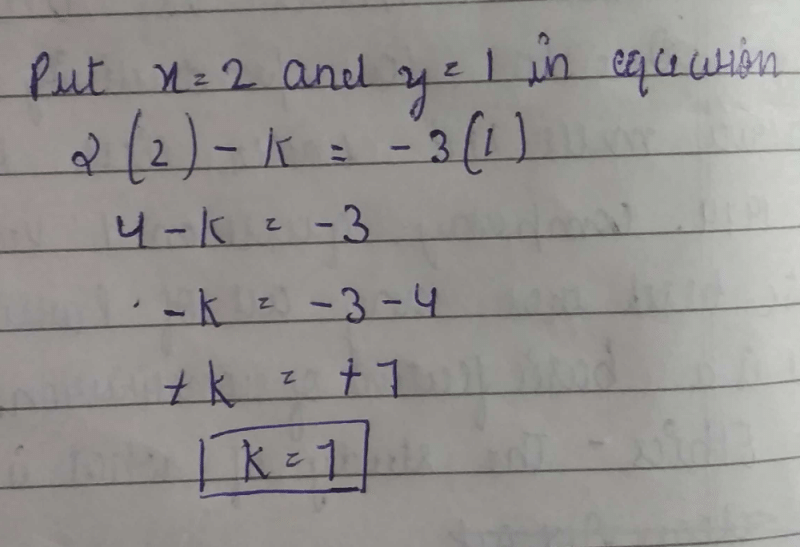 Put x = 2 and y = 1 in equation
2 (2) - k = - 3 (1)
4 - k = - 3
- k = - 3 - 4
+ k = + 7
k = 7